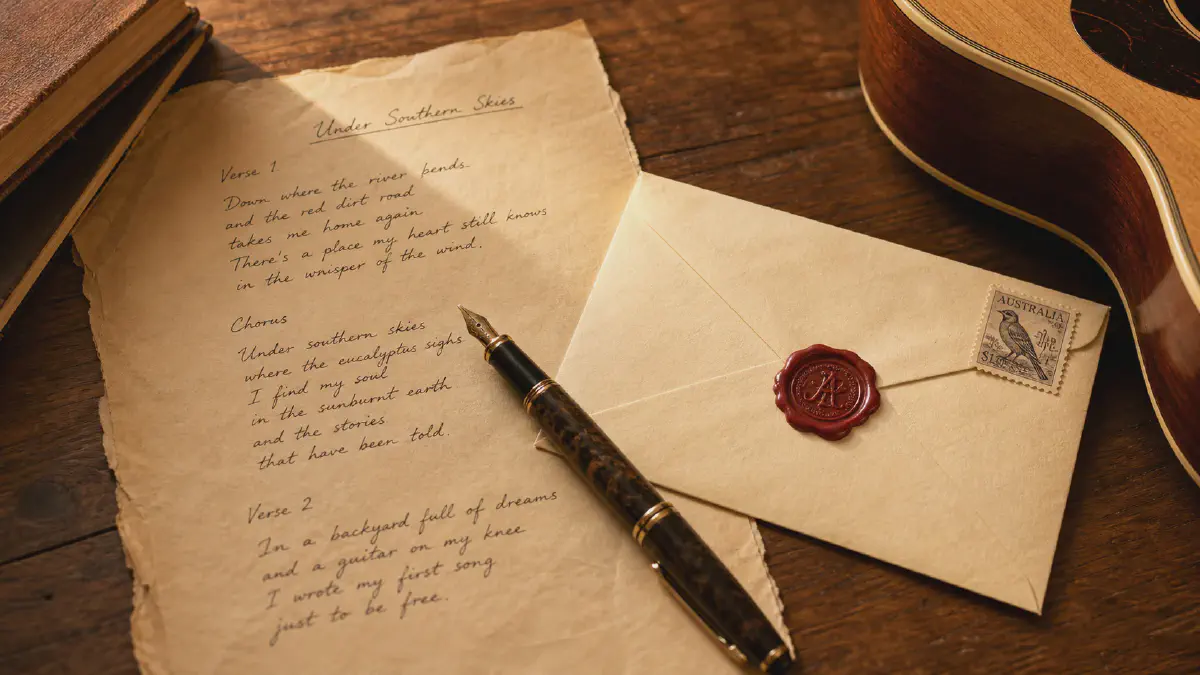 Under Southern Skies
Verse 1
Down where the river bends
and the red dirt road
takes me home again
There's a place my heart still knows
in the whisper of the wind.
Chorus
Under southern skies
where the eucalyptus sighs
I find my soul
in the sunburnt earth
and the stories
that have been told.
Verse 2
In a backyard full of dreams
and a guitar on my knee
I wrote my first song
just to be free.
AUSTRALIA